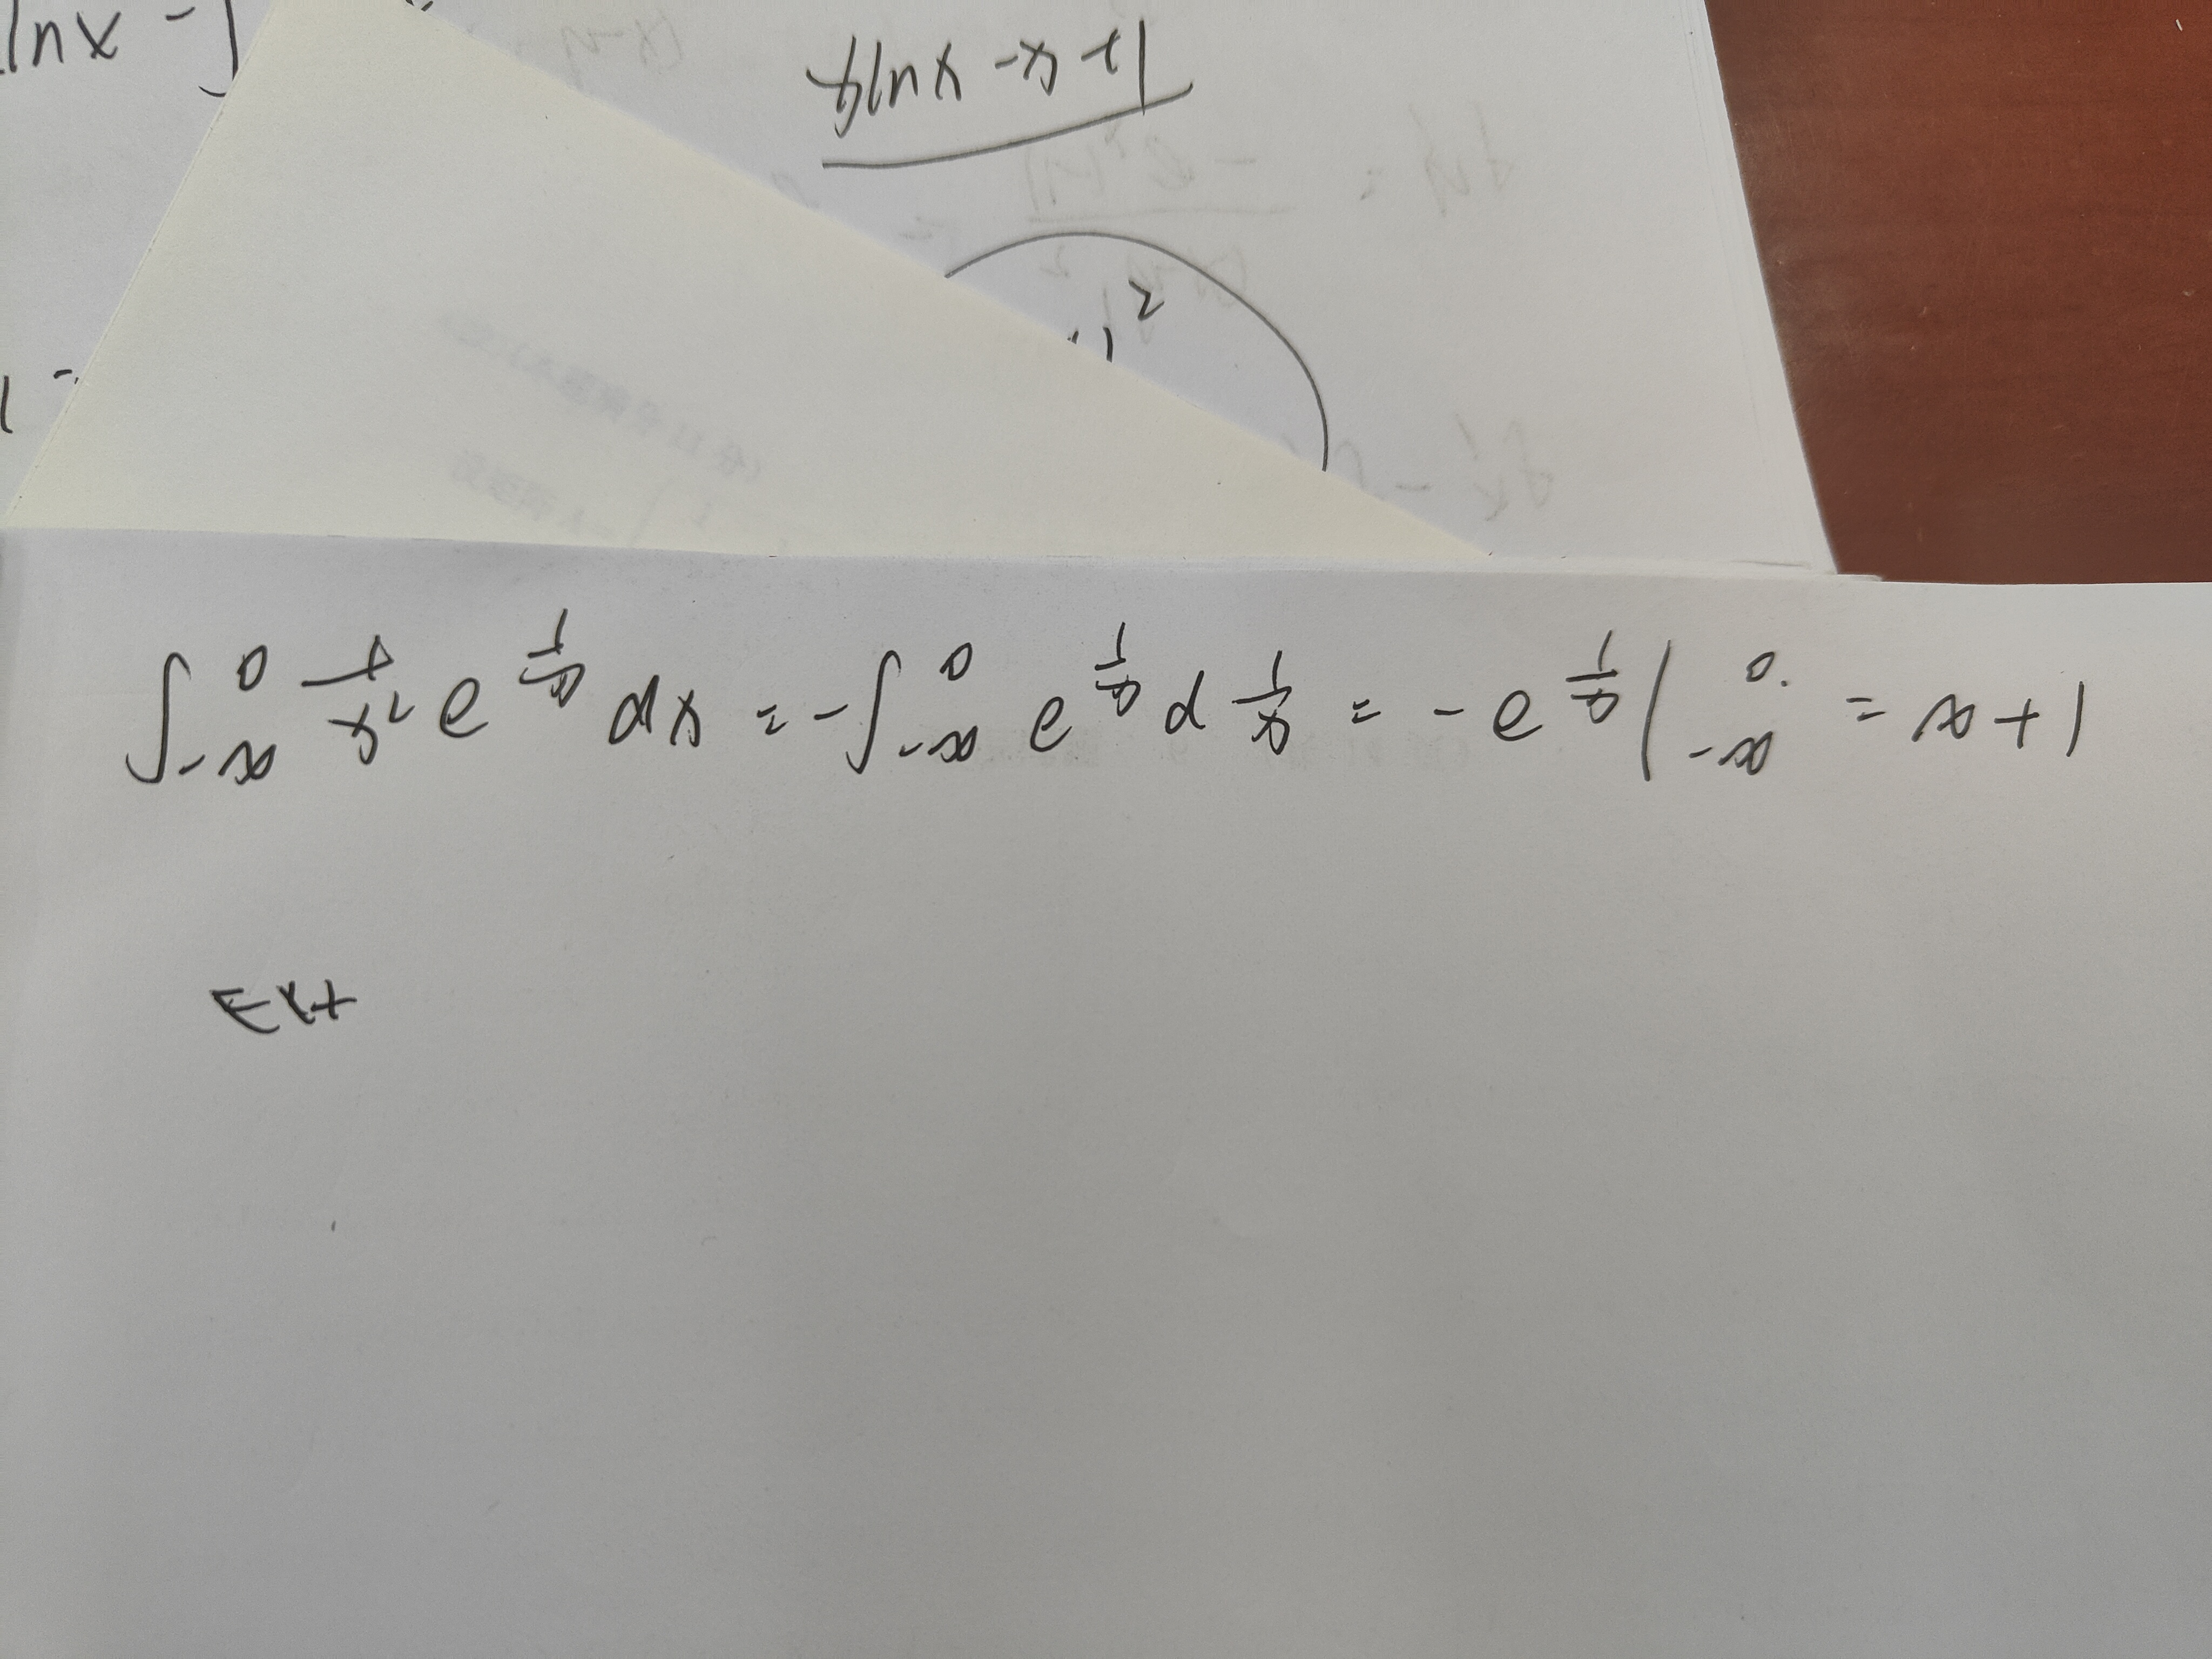 lnx -
xlnx -x +1
2
1 -
∫_{-∞}^{0} \frac{1}{x^2} e^{\frac{1}{x}} dx = -∫_{-∞}^{0} e^{\frac{1}{x}} d \frac{1}{x} = -e^{\frac{1}{x}} |_{-∞}^{0} = ∞+1